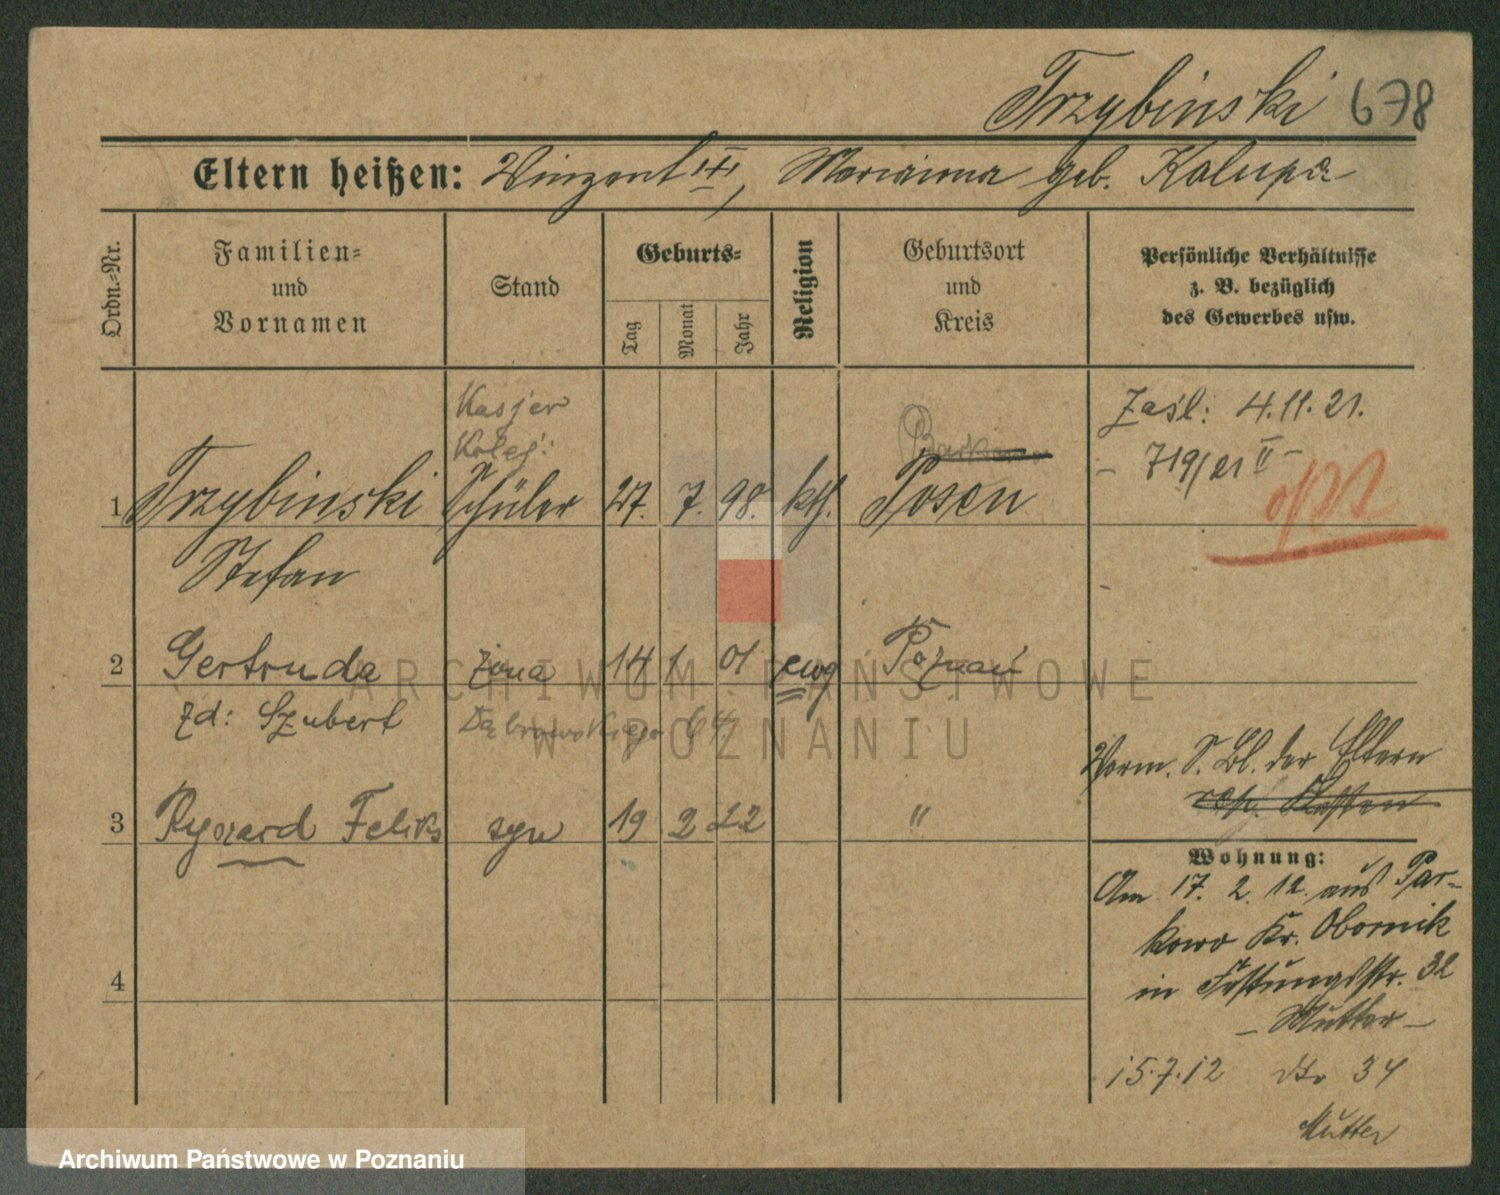 Trzybinski 678
Eltern heißen: Vinzent ☩, Marianna geb. Kalupa
Ordn.-Nr.
Familien-
und
Vornamen
Stand
Geburts-
Tag
Monat
Jahr
Religion
Geburtsort
und
Kreis
Persönliche Verhältnisse
z. B. bezüglich
des Gewerbes usw.
Kasjer
Kolej:
Zaśl: 4.11.21.
- 719/21 II -
1 Trzybinski Schüler 27. 7. 98. kth. Posen
Stefan
2 Gertruda żona 14 1 01 ewg Poznań
zd: Szubert Dąbrowskiego 64
Vorm. S. Bl. der Eltern
3 Ryszard Feliks syn 19 2 22 "
Wohnung:
Am 17. 2. 12. aus Par-
kowo Kr. Obornik
in Festungsstr. 32
- Mutter -
4
15.7.12 dto 34
Mutter
ARCHIWUM PAŃSTWOWE
W POZNANIU
Archiwum Państwowe w Poznaniu